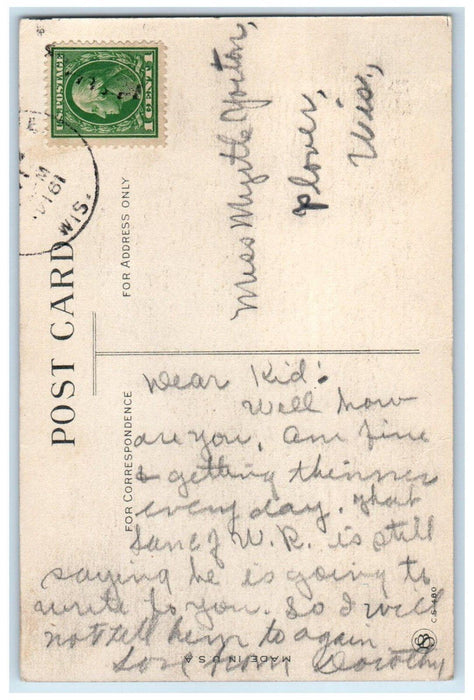 U.S. POSTAGE
1 CENT 1
WIS.
POST CARD
FOR ADDRESS ONLY
Miss Myrtle Yorton,
Plover,
Wis.,
FOR CORRESPONDENCE
Dear Kid:
Well how
are you, Am fine
& getting thinner
everyday. That
W.R. is still
saying he is going to
write to you. So I will
not tell him to again
Love from Dorothy
MADE IN U.S.A.